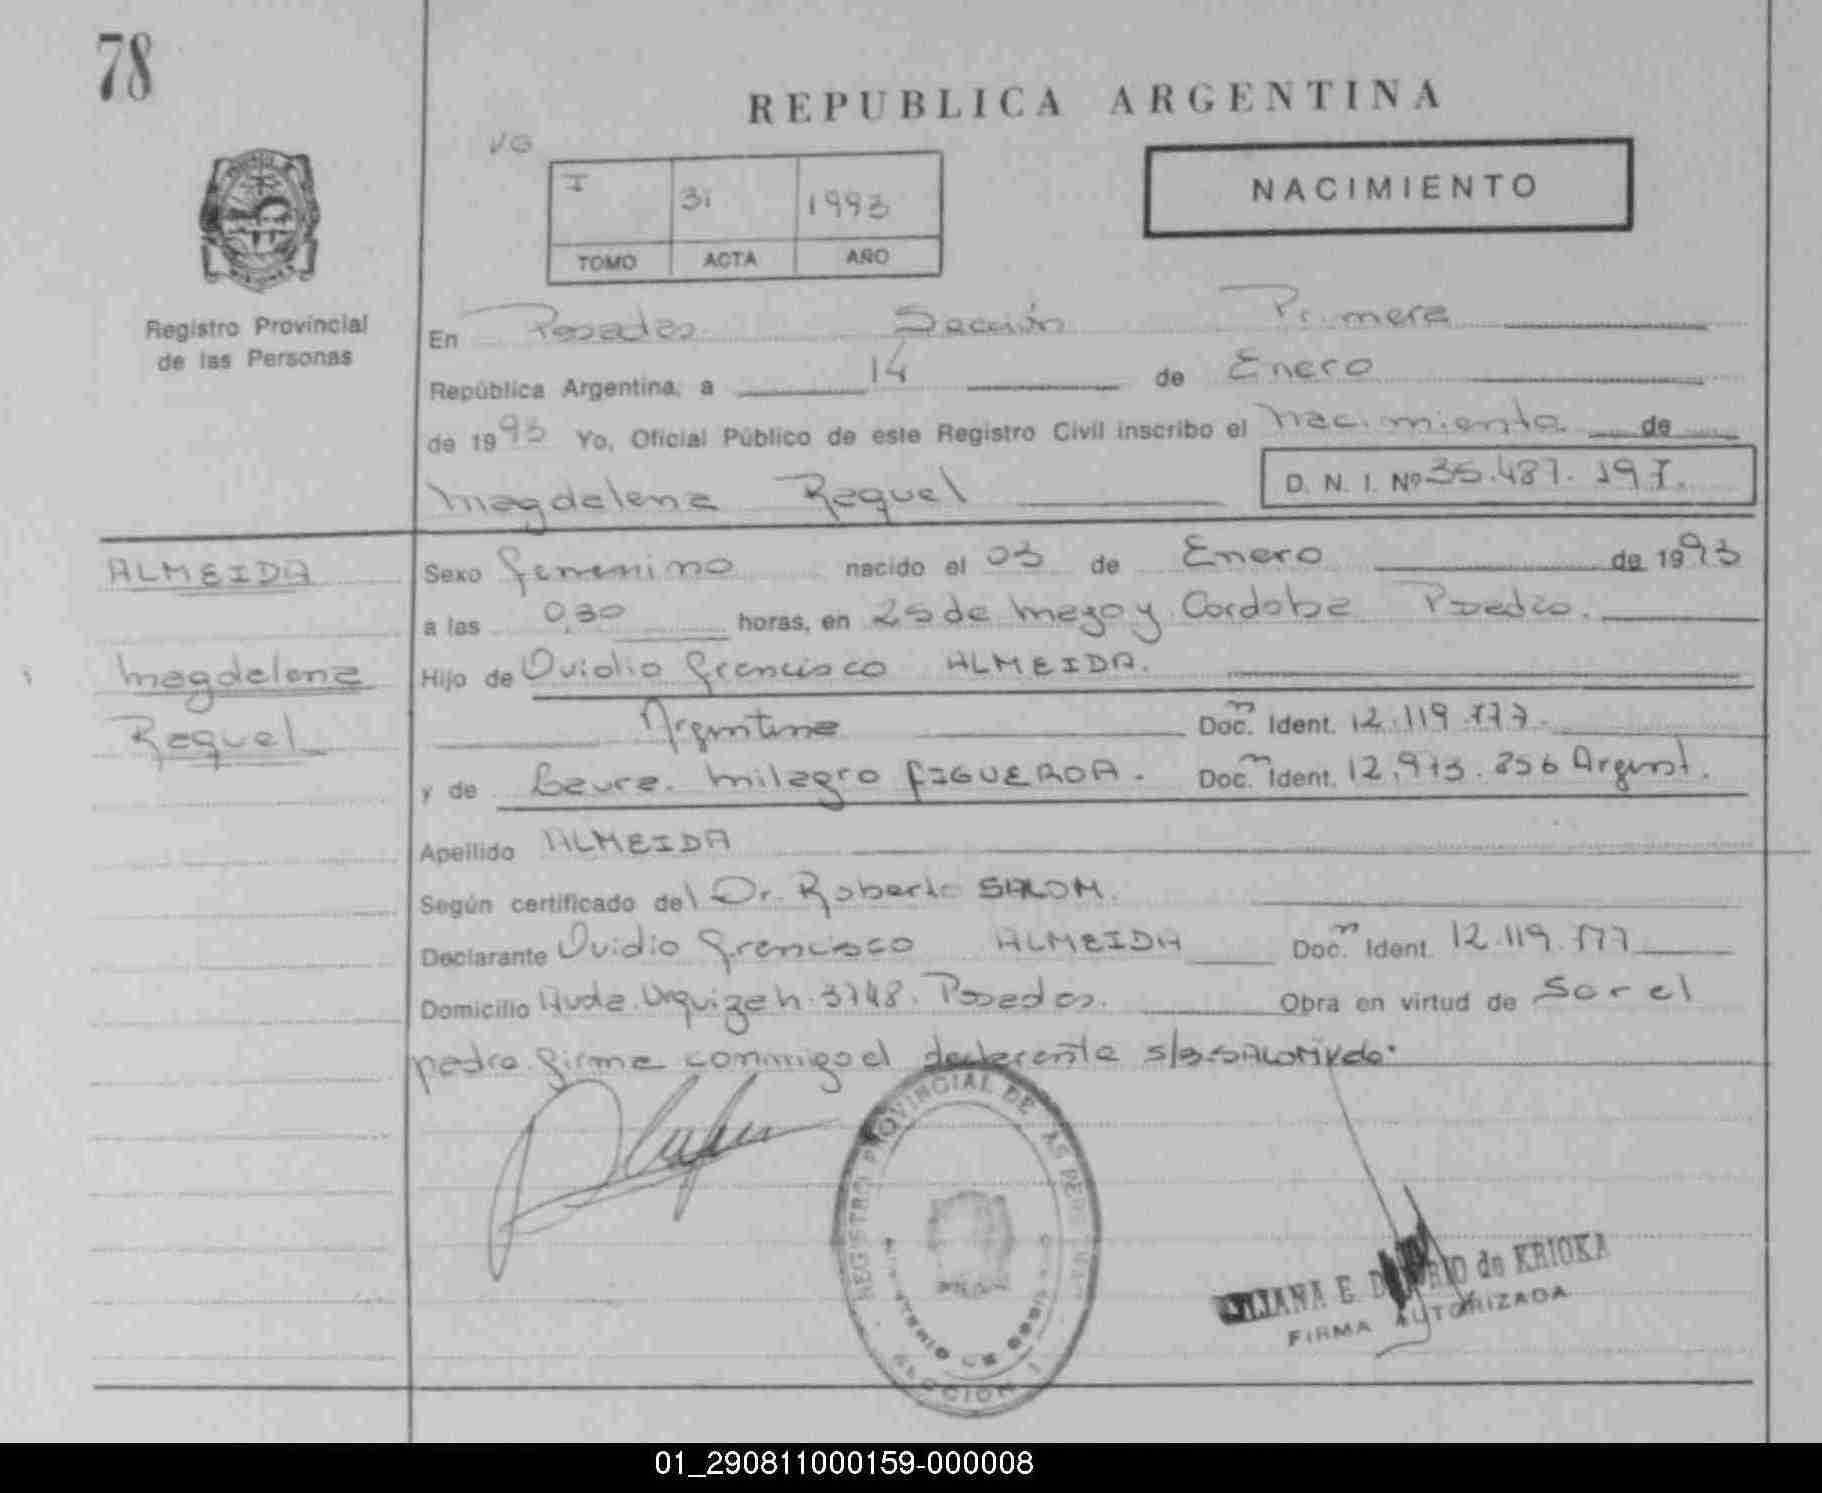 78
REPUBLICA ARGENTINA
VG
NACIMIENTO
I 31 1993
TOMO ACTA AÑO
Registro Provincial
de las Personas
En Posadas Sección Primera
República Argentina, a 14 de Enero
de 1993 Yo, Oficial Público de este Registro Civil inscribo el nacimiento de
Magdalena Raquel D. N. I. Nº 35.487.197.
ALMEIDA
Magdalena
Raquel
Sexo femenino nacido el 03 de Enero de 1993
a las 0,30 horas, en 25 de Mayo y Cordoba Posadas.
Hijo de Ovidio Francisco ALMEIDA.
Argentina Doc. Ident. 12.119.777.
y de Laura Milagro FIGUEROA. Doc. Ident. 12.973.256 Argent.
Apellido ALMEIDA
Según certificado del Dr. Roberto SALOM.
Declarante Ovidio Francisco ALMEIDA Doc. Ident. 12.119.777
Domicilio Avda. Urquiza n. 3748. Posadas. Obra en virtud de Ser el
padre firma conmigo el declarante s/b-SALOM vale.
REGISTRO PROVINCIAL DE LAS
SECCION 1
E. de KRIOKA
FIRMA AUTORIZADA
01_290811000159-000008